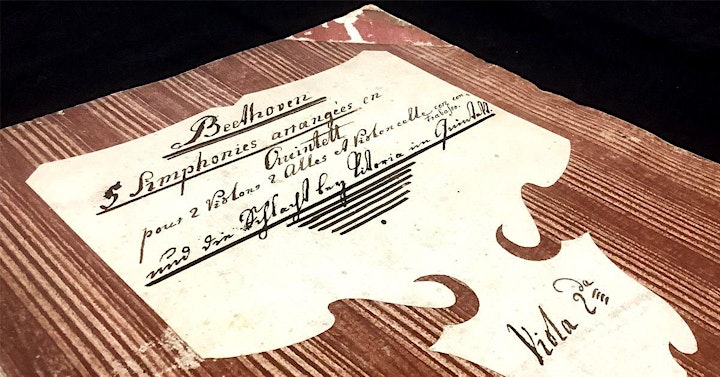 Beethoven
5 Simphonies arrangées en
Quintett
pour 2 Violons 2 Altes et Violoncelle
und die Schlacht bey Vitoria in Quintett.
Viola 2da